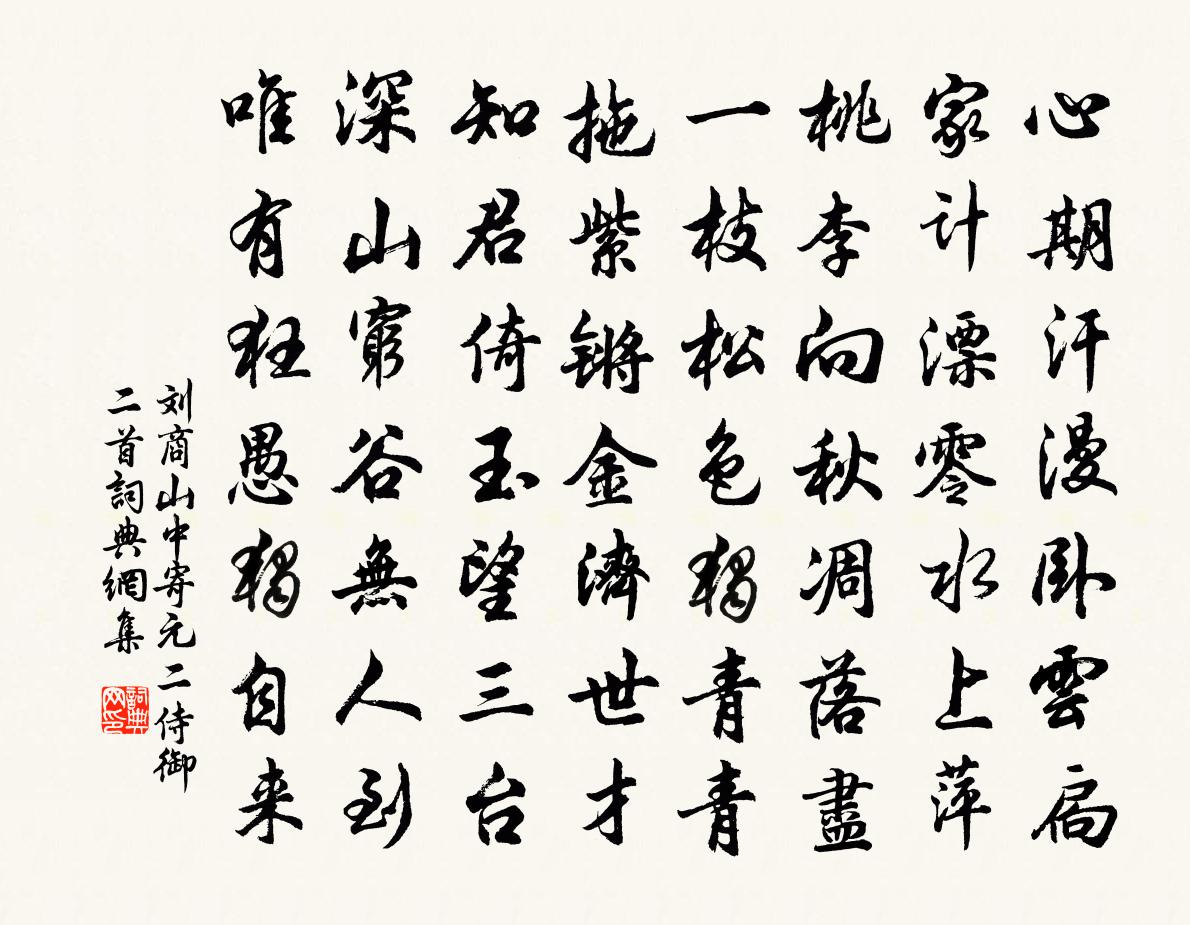 心期汗漫卧雲扃
家计漂零水上萍
桃李向秋凋落盡
一枝松色獨青青
拖紫锵金濟世才
知君倚玉望三台
深山窮谷無人到
唯有狂愚獨自来
刘商山中寄元二侍御
二首詞典網集
詞典网印